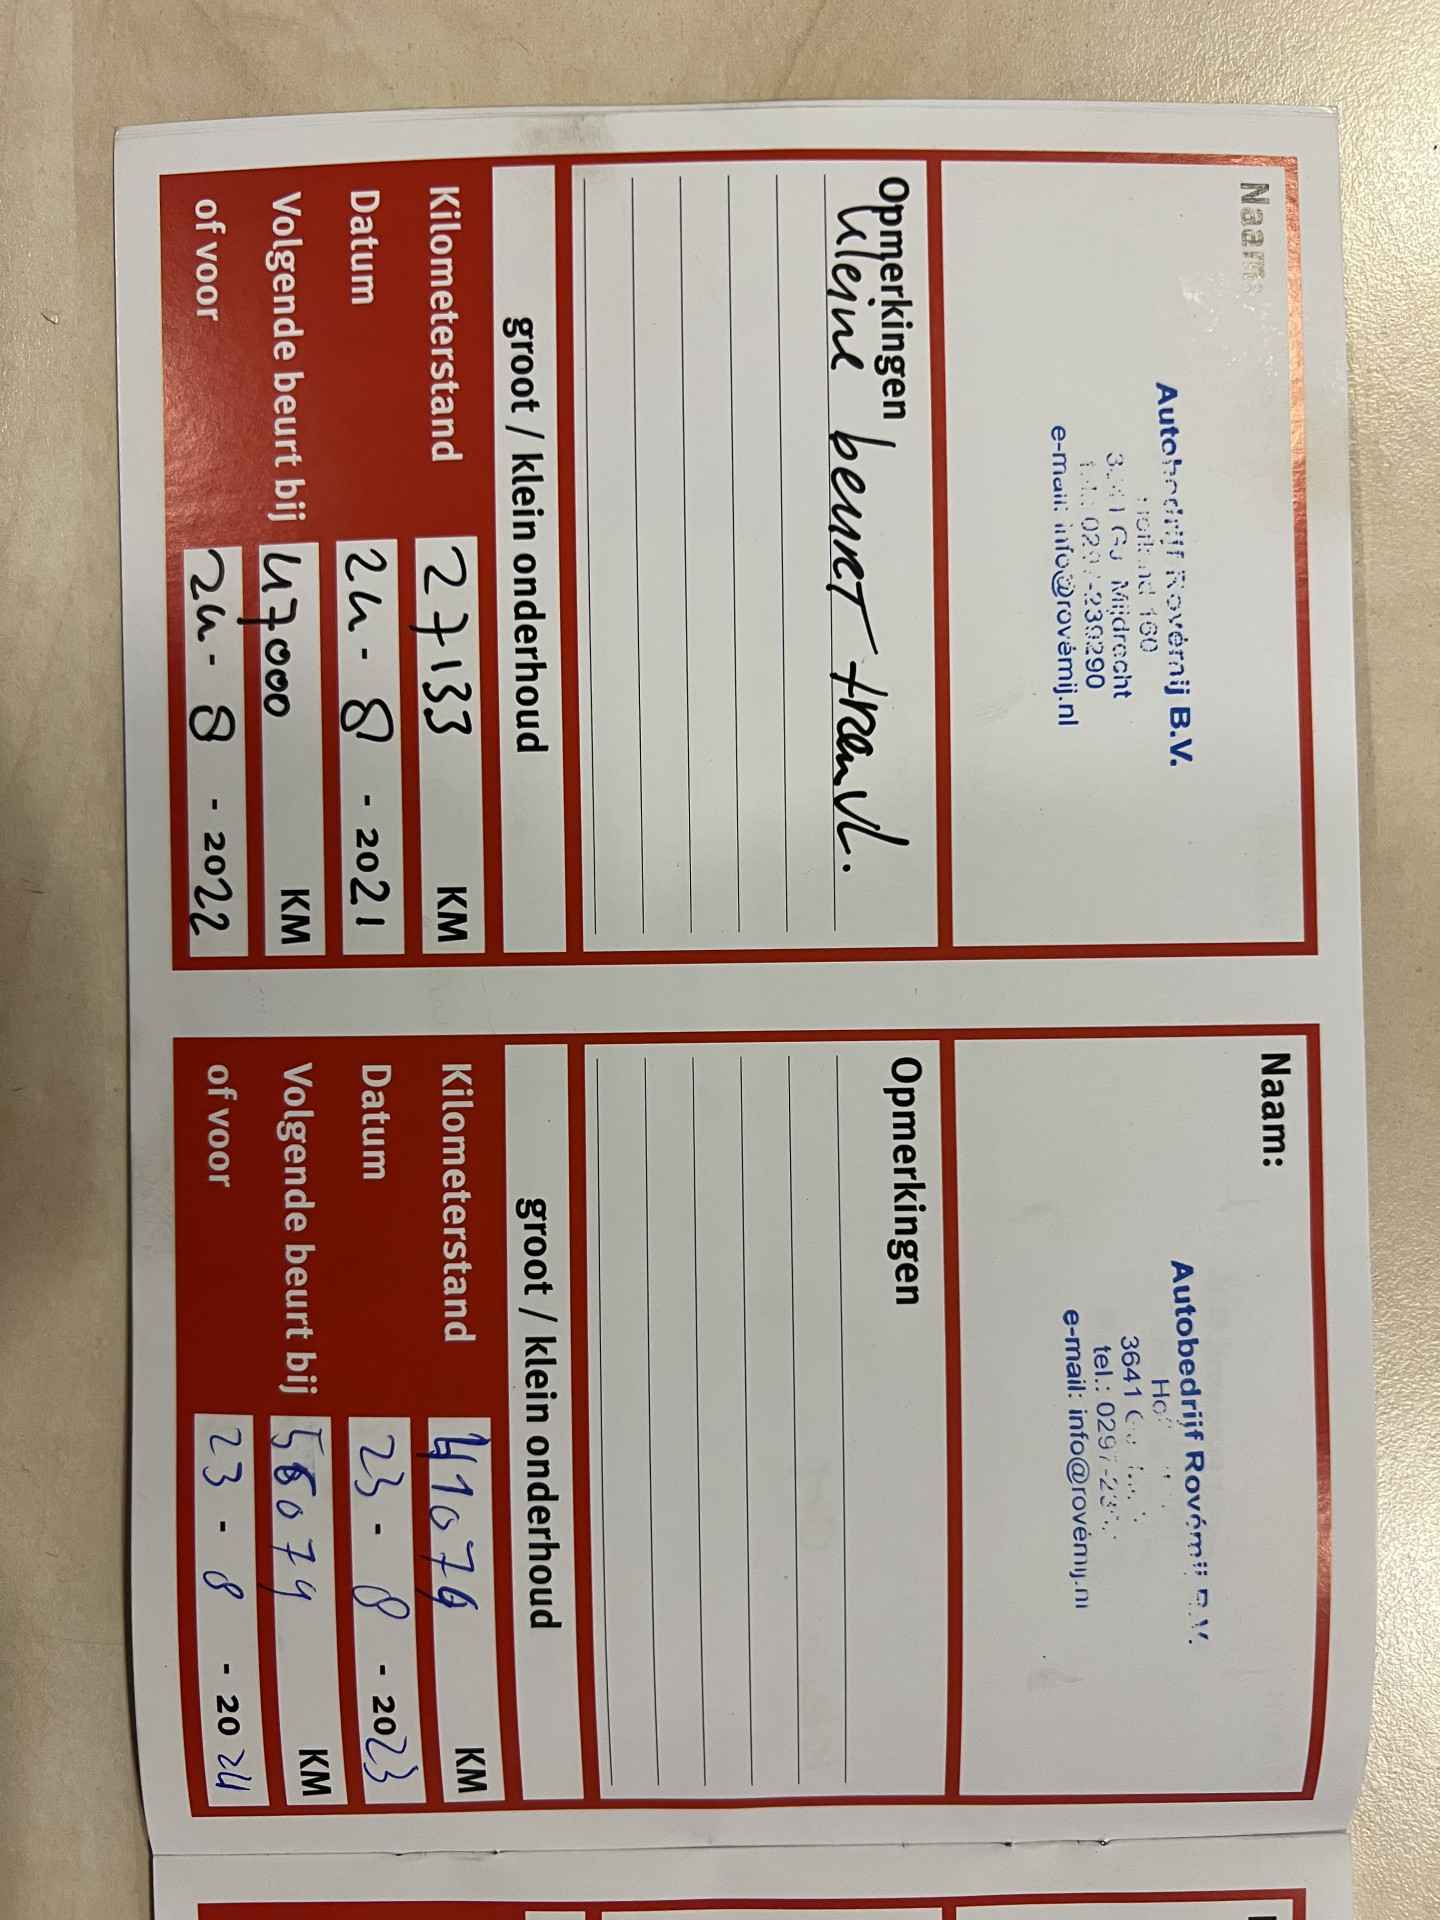 Naam:
Autobedrijf Rovémij B.V.
160
Mijdrecht
e-mail: info@rovémij.nl
Opmerkingen
kleine beurt
groot / klein onderhoud
Kilometerstand 27133 KM
Datum 24 - 8 - 2021
Volgende beurt bij 47000 KM
of voor 24 - 8 - 2022
Naam:
Autobedrijf Rovémij B.V.
3641
tel.: 0297-
e-mail: info@rovémij.nl
Opmerkingen
groot / klein onderhoud
Kilometerstand 41079 KM
Datum 23 - 8 - 2023
Volgende beurt bij 56079 KM
of voor 23 - 8 - 2024